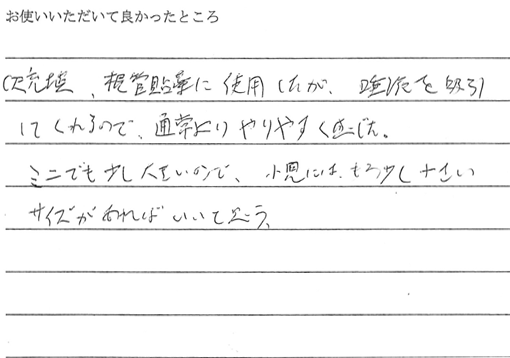 お使いいただいて良かったところ
CR充填、根管貼薬に使用したが、唾液を吸引
してくれるので、通常よりやりやすく感じた。
ミニでも少し大きいので、小児には、もう少し小さい
サイズがあればいいと思う。